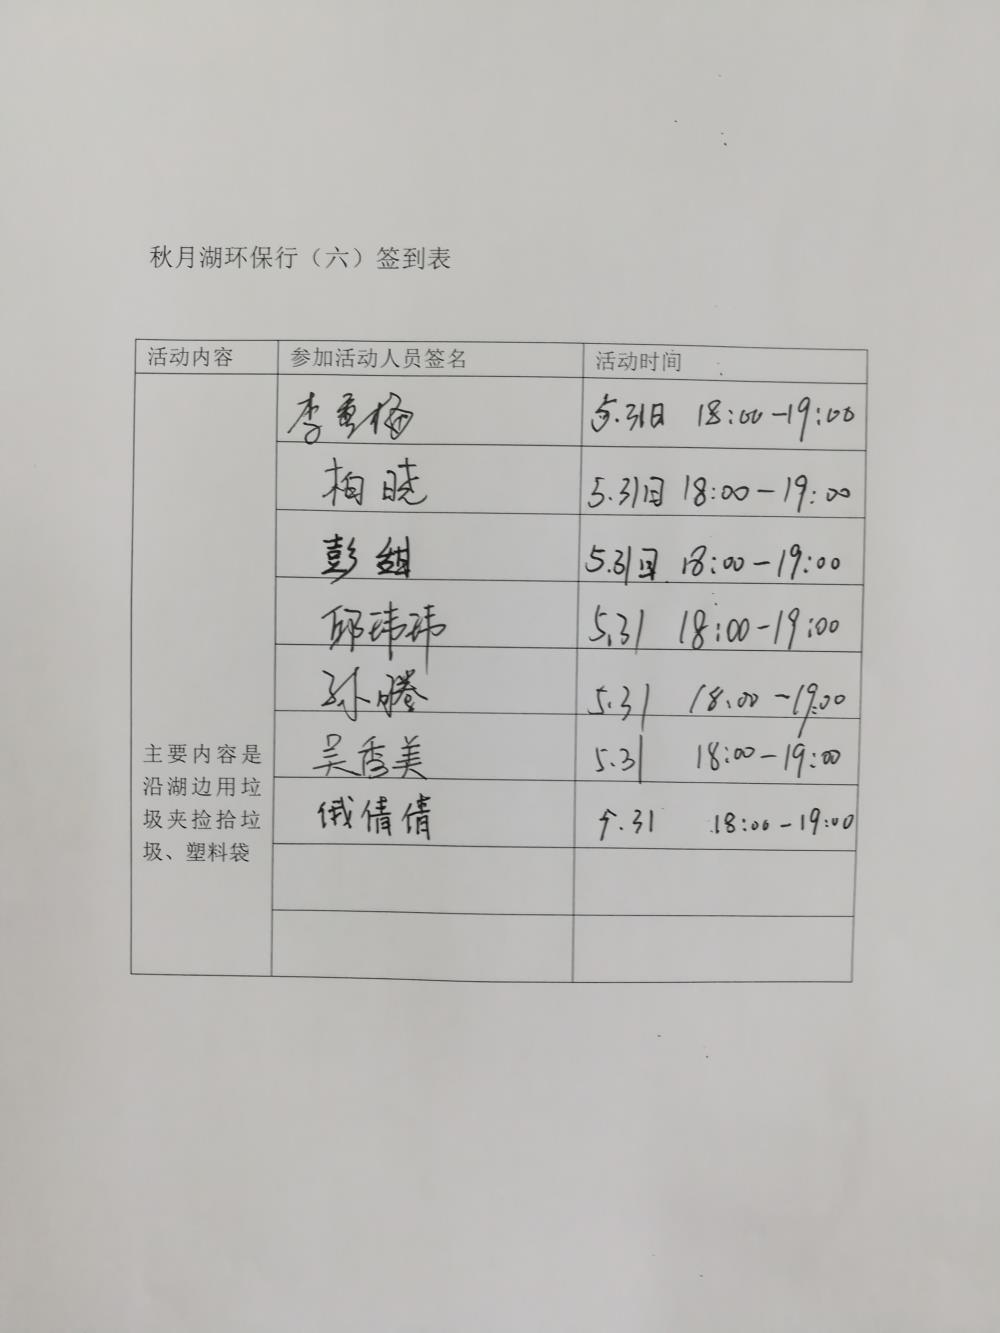 秋月湖环保行（六）签到表
活动内容 参加活动人员签名 活动时间
李重梅 5.31日 18:00-19:00
柏晓 5.31日 18:00-19:00
彭甜 5.31日 18:00-19:00
邱玮玮 5.31 18:00-19:00
孙 5.31 18:00-19:00
吴秀美 5.31 18:00-19:00
俄倩倩 5.31 18:00-19:00
主要内容是
沿湖边用垃
圾夹捡拾垃
圾、塑料袋